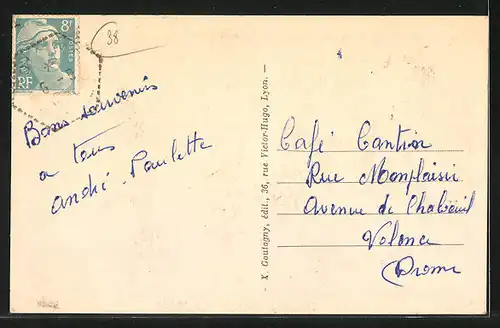 8F
POSTES
RF
38
Bons souvenirs
a tous
André - Paulette
- X. Goutagny, édit., 36, rue Victor-Hugo, Lyon. -
Café Cantin
Rue Monplaisir
Avenue de Chabeuil
Valence
Drome